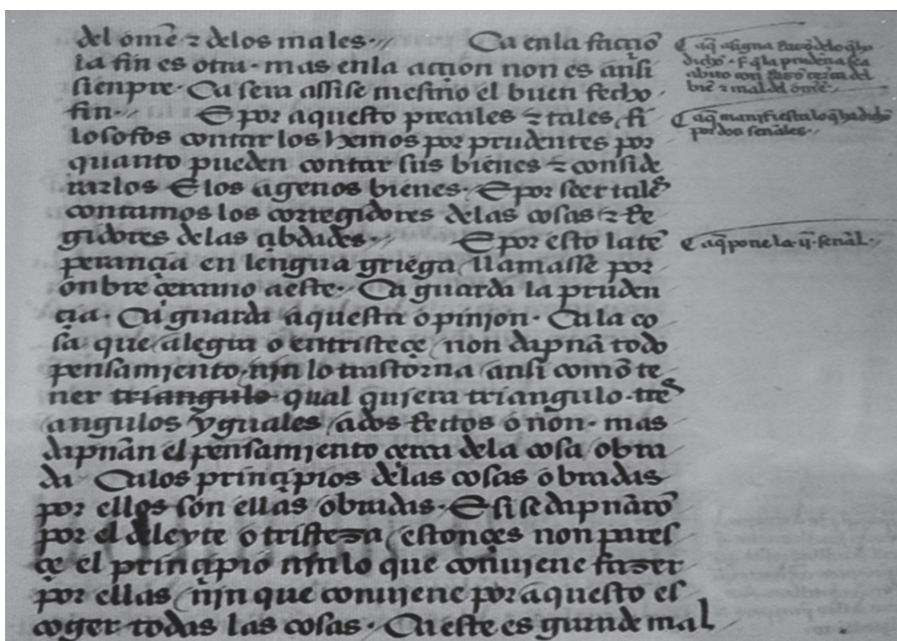 del omẽ ⁊ delos males·
Ca enla facçiõ
la fin es otra · mas enla acçion non es ansi
sienpre · Ca sera assise mesmo el buen fecho ·
fin·
E por aquesto precailes ⁊ tales fi
losofos contar los hemos por prudentes por
quanto pueden contar sus bienes ⁊ conside
rarlos E los agenos bienes · E por seer tales
contamos los corregidores delas cosas ⁊ Re
gidores delas çibdades·
E por esto la tẽ
perançia en lengua griega llamasse por
onbre çercano a este · Ca guarda la pruden
çia · Ca guarda aquesta opinjon · Ca la co
sa que alegra o entristeçe non dapnã todo
pensamiento · njn lo trastorna ansi como te
ner triangulo · qual quiera triangulo · tres
angulos yguales ados Rectos o non · mas
dapnan el pensamjento çerca dela cosa obra
da Ca los prinçipios delas cosas obradas
por ellos son ellas obradas · E si se dapnarõ
por el deleyte o tristeza estonçes non pares
çe el prinçipio njn lo que conujene fazer
por ellas njn que conujene por aquesto es
coger todas las cosas · Ca este es grande mal
aq̃ asigna Razõ delo q̃ ha
dicho · E q̃ la prudençia sea
abito con Razõ çerca del
biẽ ⁊ mal del omẽ·
aq̃ manifiesta lo q̃ ha dicho
por dos señales·
aq̃ pone la · ij · señal·